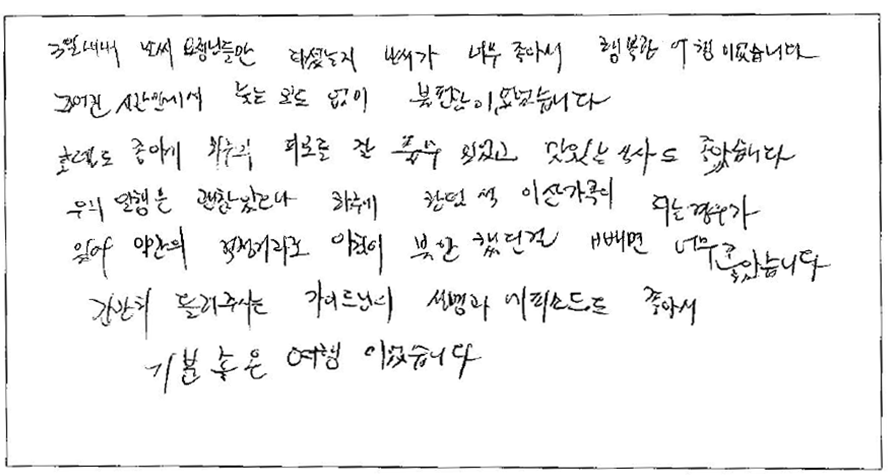 3일내내 날씨 요정님들만 타셨는지 날씨가 너무 좋아서 행복한 여행이었습니다
주어진 시간안에서 늦는 없이
호텔도 좋아서 하루의 피로를 잘 풀수 있었고 맛있는 식사도 좋았습니다
우리 일행은 괜찮았으나 하루에 한번씩 이산가족이 되는경우가
있어 약간의 불안 했던걸 빼면 너무 좋았습니다
간간히 들려주시는 가이드님의 설명과 에피소드도 좋아서
기분 좋은 여행 이었습니다